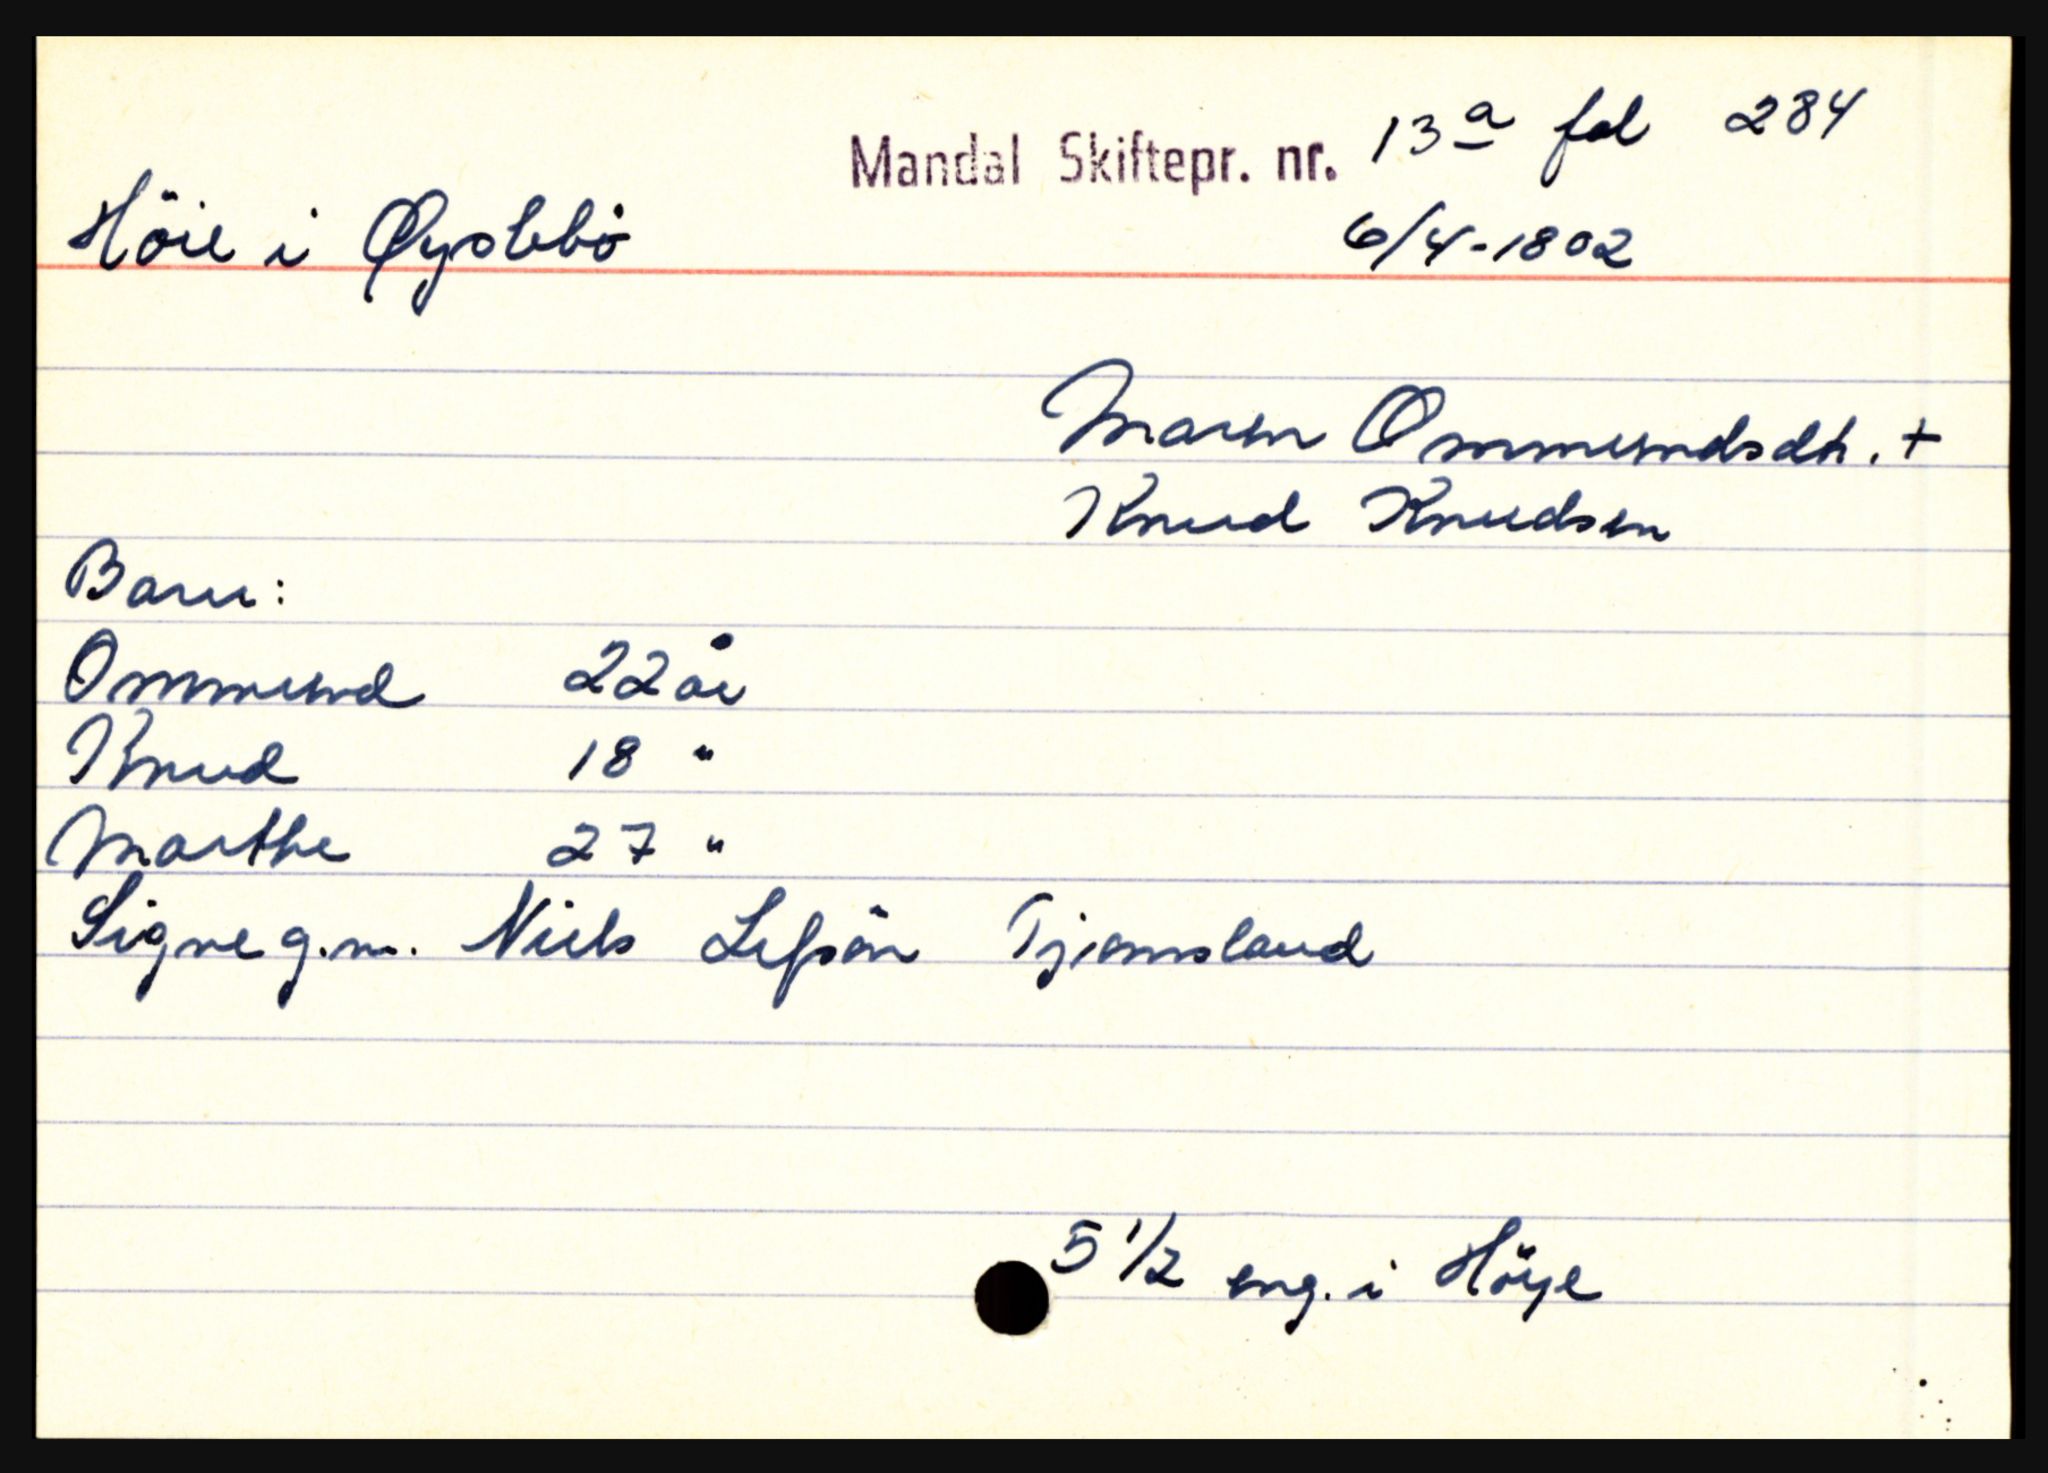 Mandal Skiftepr. nr. 13a fol 284
Höie i Øyslebö 6/4-1802
Maren Ommundsdtr. +
Knud Knudsen
Barn:
Ommund 22 år
Knud 18 "
Marthe 27 "
Signe g.m. Niels Lefsön Tjomsland
5 1/2 eng. i Höye